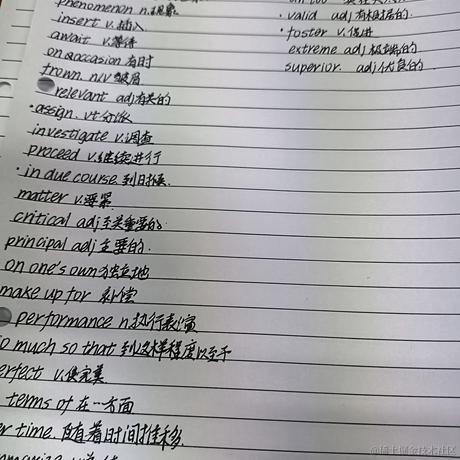 phenomenon n.现象.
insert v.插入
await v.等待
on occasion 有时
frown n/v 皱眉
relevant adj 有关的
·assign. vt 分派
investigate v.调查
proceed v.继续进行
·in due course 到时候.
matter v.要紧
critical adj 至关重要的.
principal adj 主要的.
on one's own 独立地
make up for 补偿
performance n.执行表演
so much so that 到这样程度以至于
erfect v.使完美
terms of 在一方面
er time. 随着时间推移.
·valid adj 有根据的.
·foster v.促进
extreme adj 极端的
superior. adj 优良的
@稀土掘金技术社区